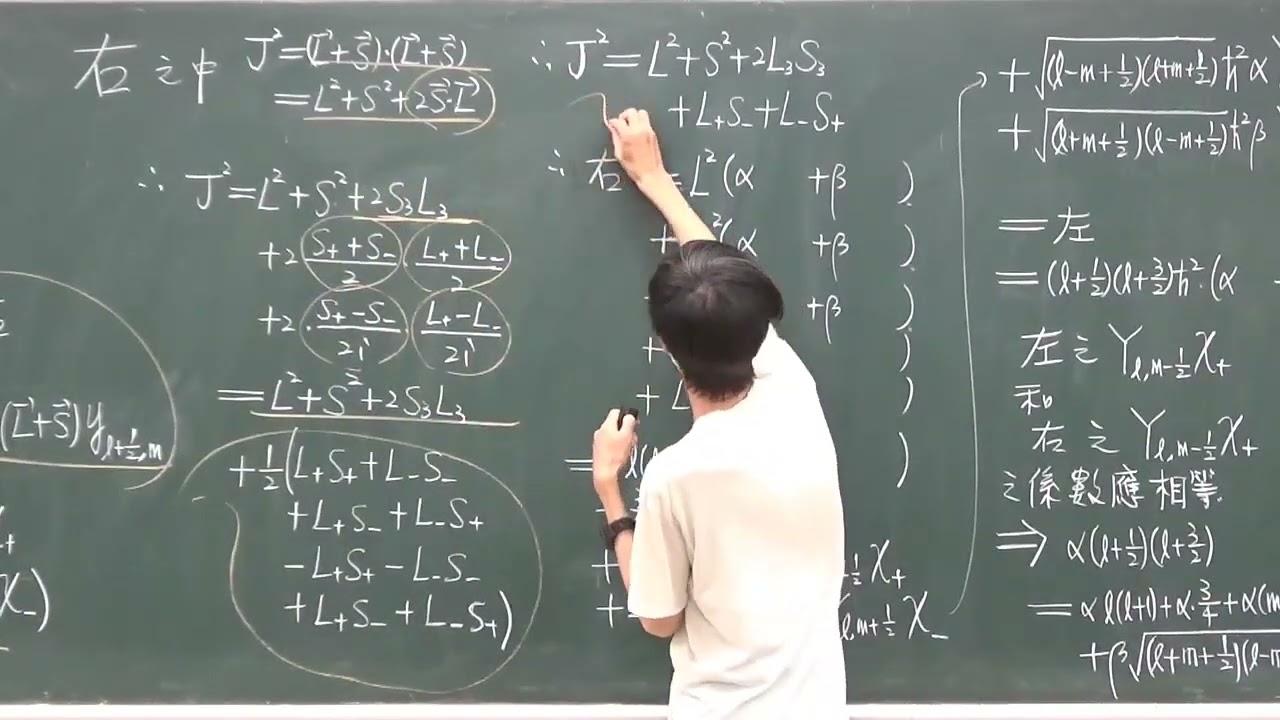 右之中
J²=(L⃗+S⃗)·(L⃗+S⃗)
=L²+S²+2S⃗·L⃗
∴ J²=L²+S²+2S₃L₃
+2 (S₊+S₋)/2 (L₊+L₋)/2
+2·(S₊-S₋)/2i (L₊-L₋)/2i
=L²+S²+2S₃L₃
+½(L₊S₊+L₋S₋
+L₊S₋+L₋S₊
-L₊S₊-L₋S₋
+L₊S₋+L₋S₊)
(L⃗+S⃗)y_{l+½,m}
χ₋)
∴ J²=L²+S²+2L₃S₃
+L₊S₋+L₋S₊
∴ 右=L²(α +β )
+ ²(α +β )
+β )
+ )
+L )
= )
+ χ₊
+ m+½ χ₋
+√((l-m+½)(l+m+½))ħ²α
+√((l+m+½)(l-m+½))ħ²β
=左
=(l+½)(l+3/2)ħ²·(α
左之Y_{l,m-½}χ₊
和
右之Y_{l,m-½}χ₊
之係數應相等.
⇒ α(l+½)(l+3/2)
=αl(l+1)+α·¾+α(m
+β√((l+m+½)(l-m